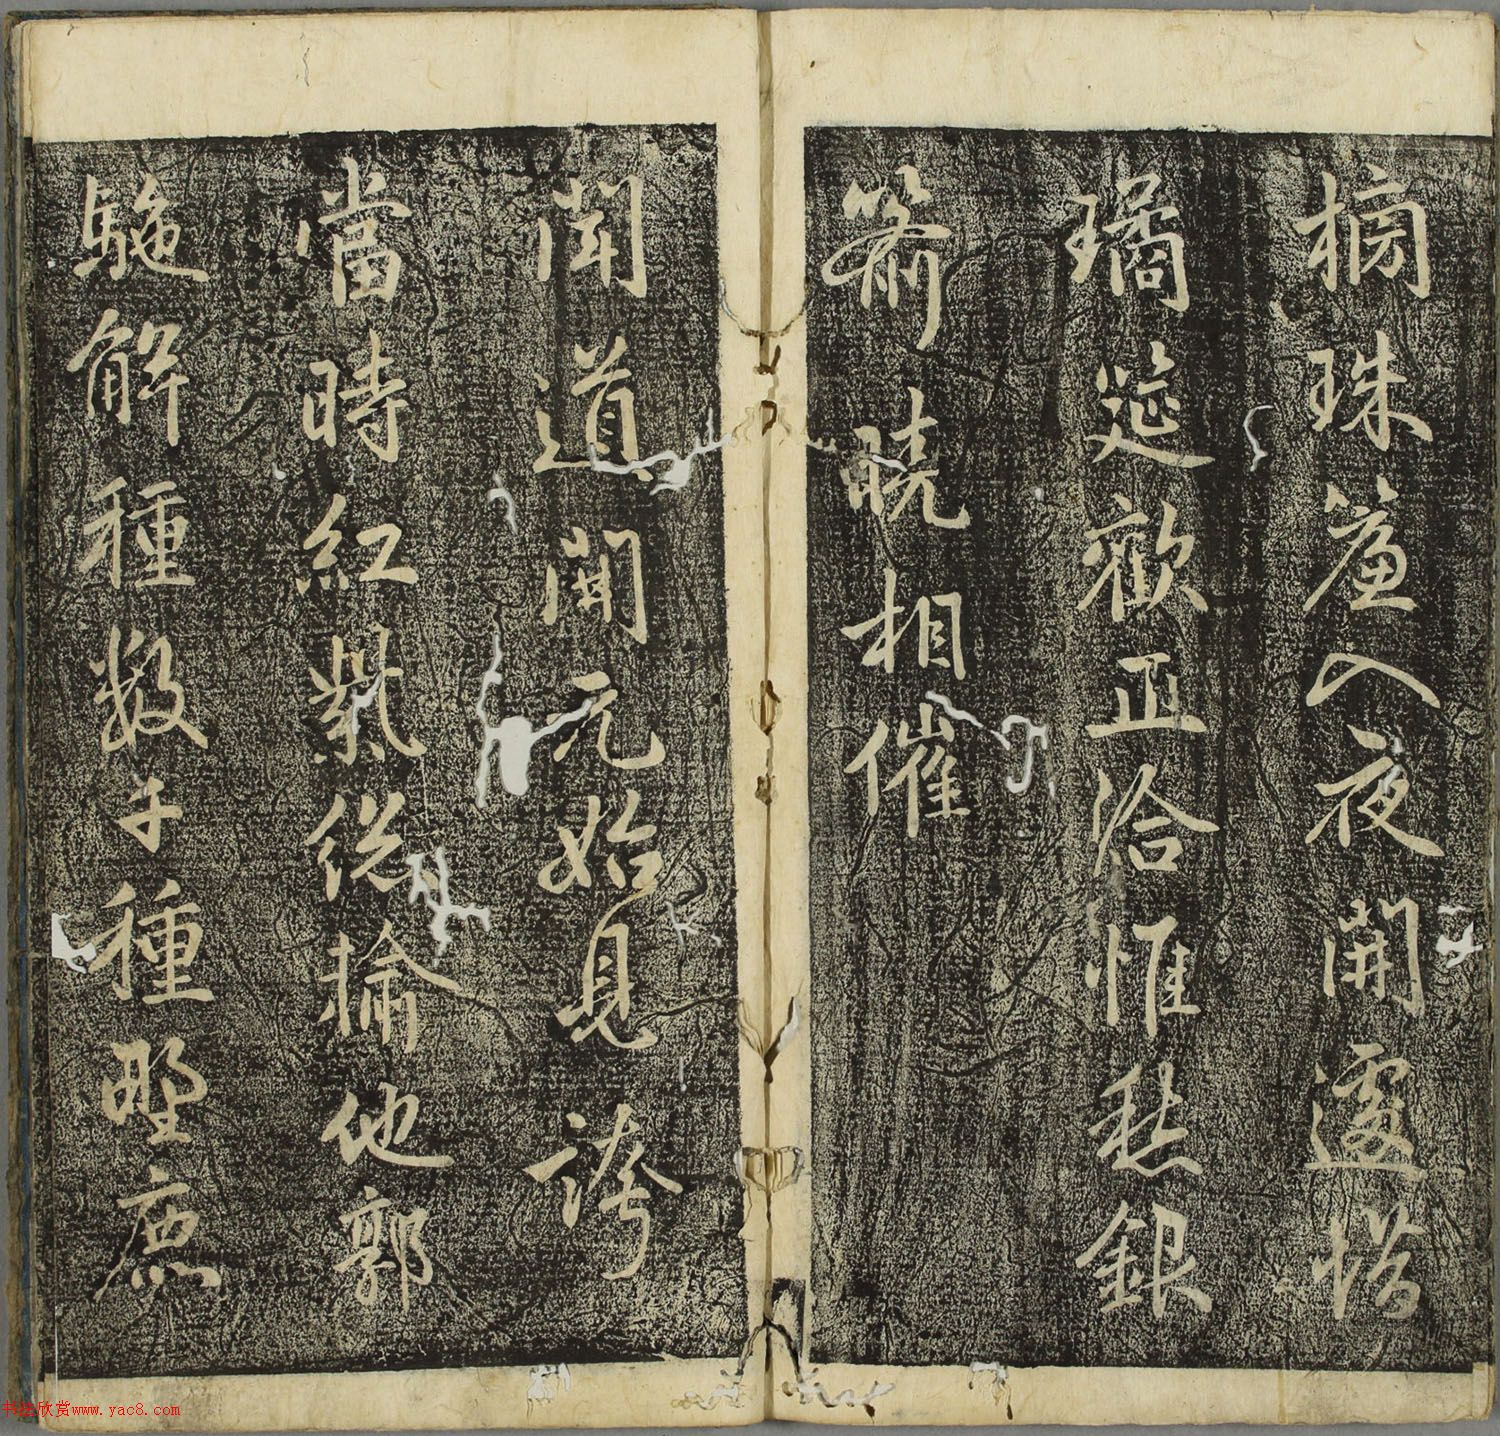 榜珠簾入夜開遽惜
璚筵歡正洽惟愁銀
箭曉相催
聞道開元始見誇
當時紅紫從掄他郭
駞解種數子種野鹿
书法欣赏www.yac8.com